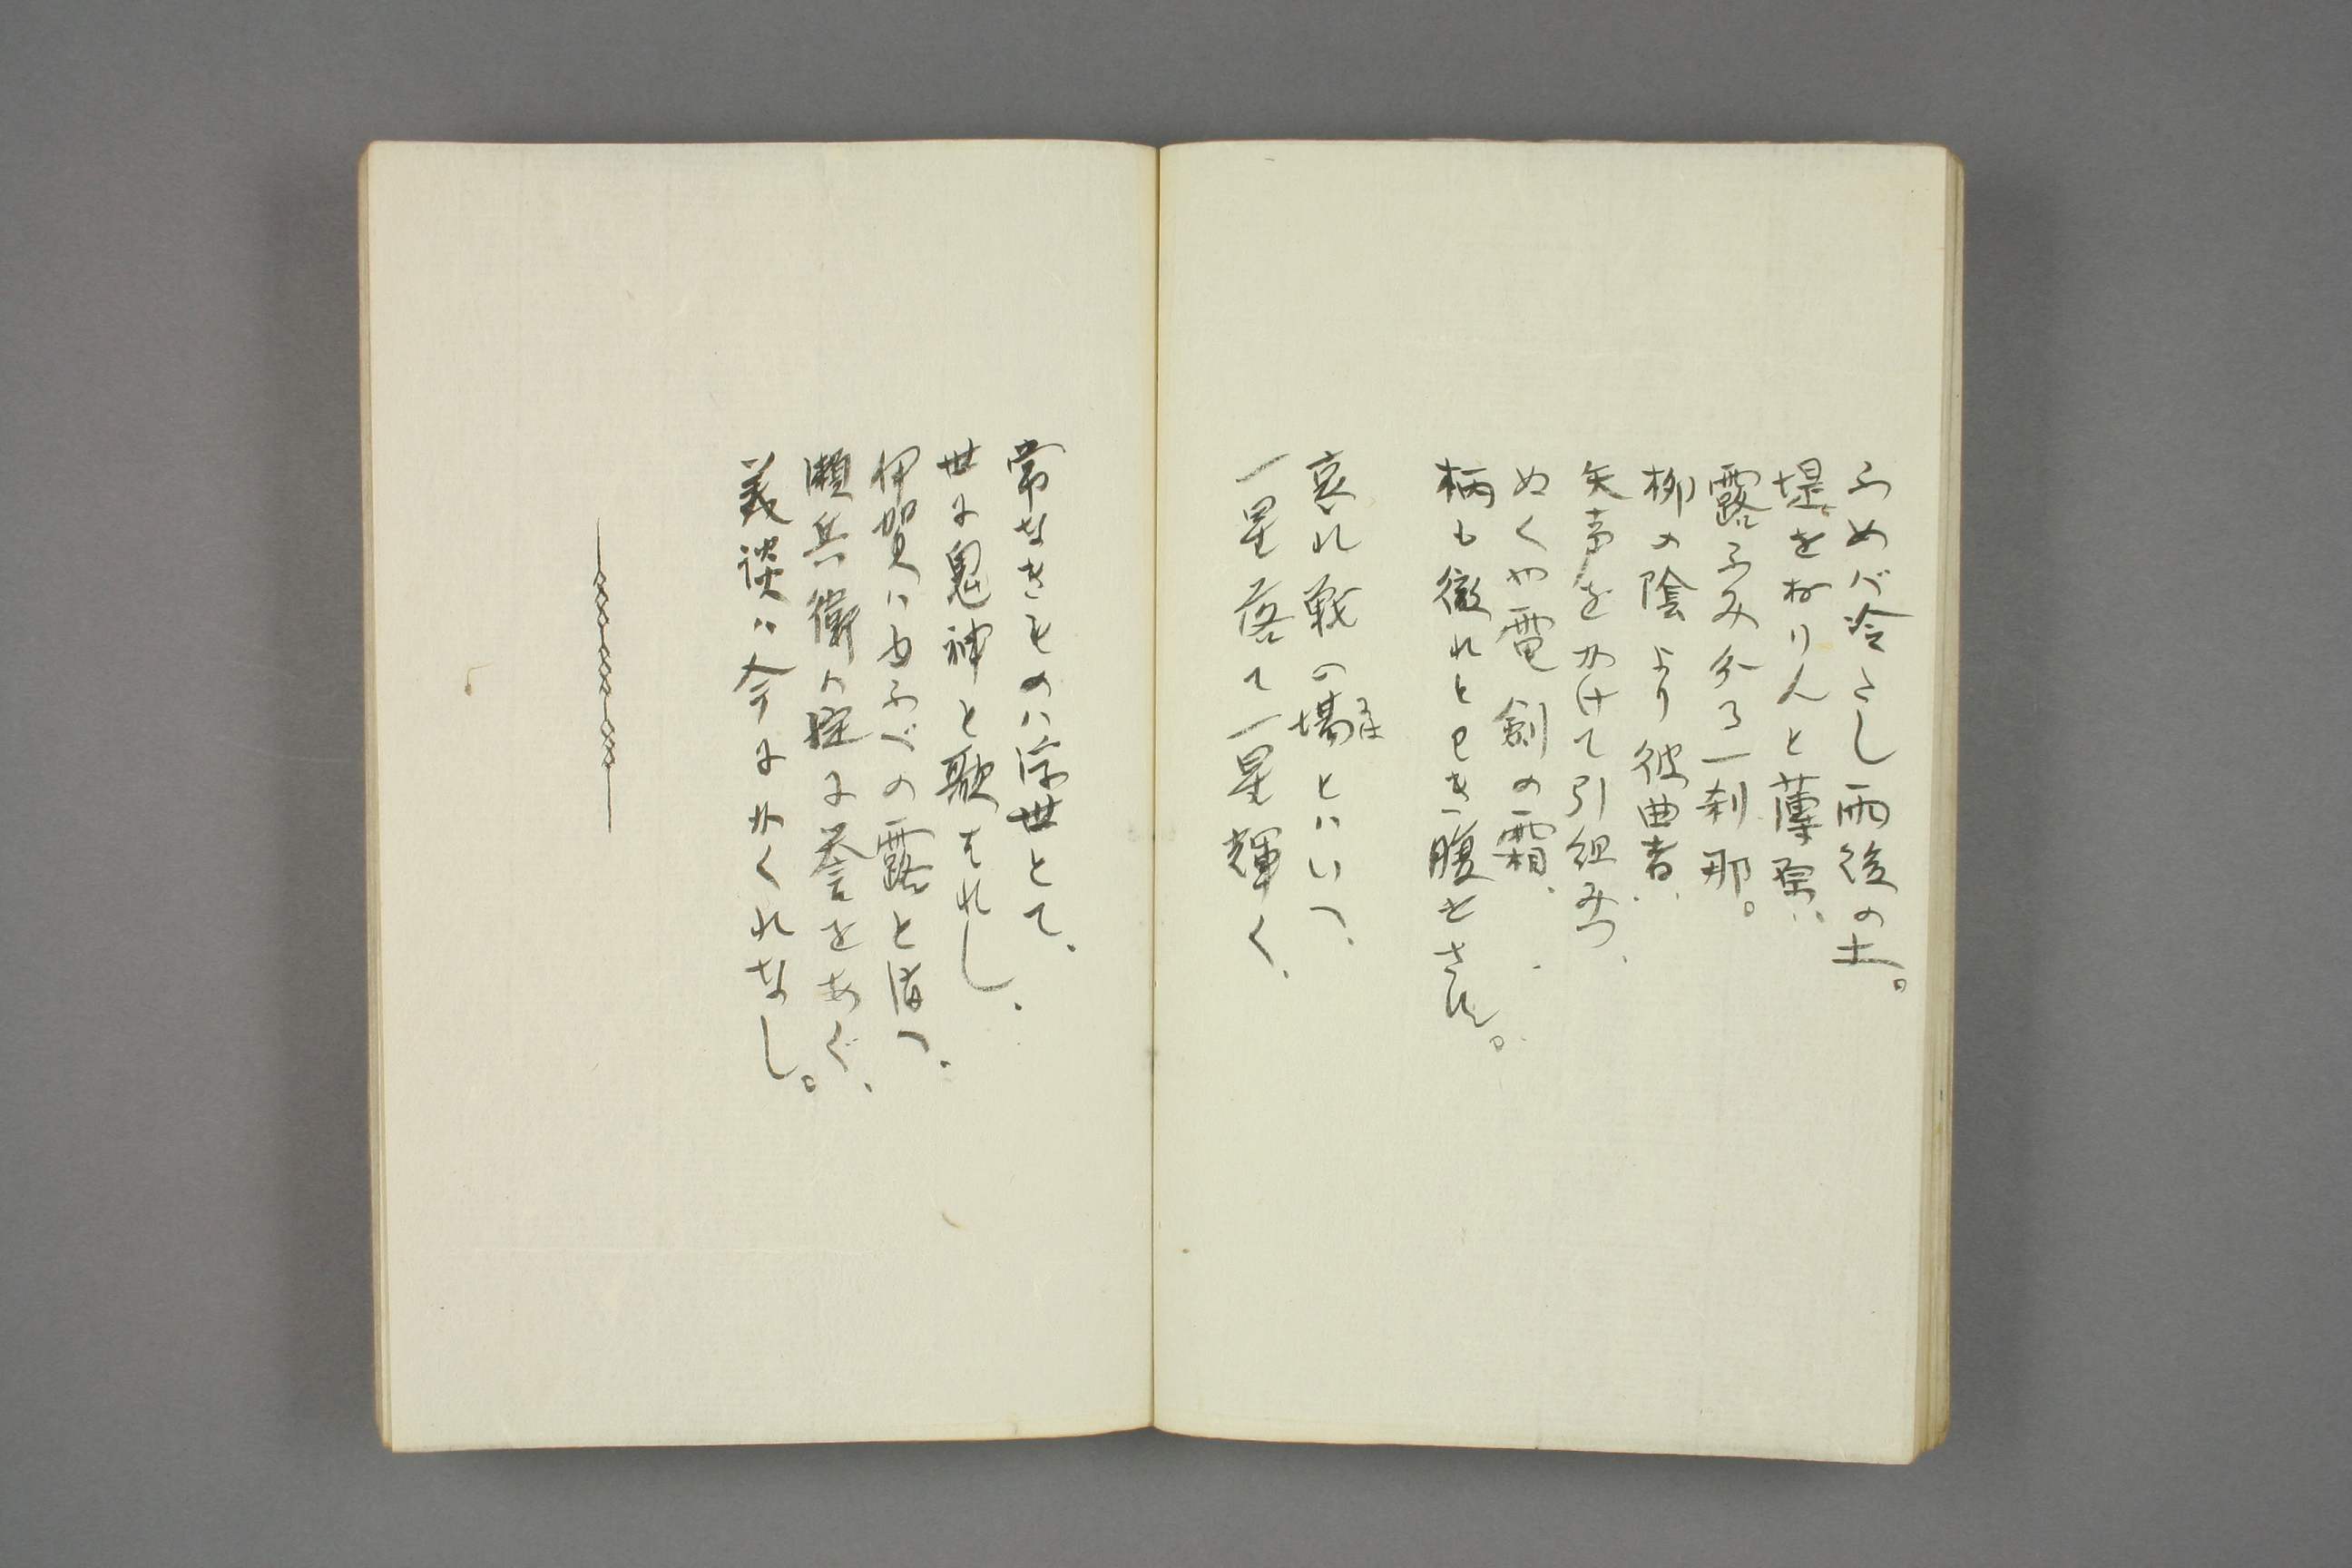 ふめバ冷たし雨後の土。
堤をおりんと薄原、
露ふみ分る一刹那。
柳の陰より彼曲者、
矢声をかけて引組みつ、
ぬくや電剣の霜、
柄も徹れとわき腹をさせ。
哀れ戦の場とハいへ、
には
一星落て一星輝く、
常なきものハ浮世とて、
世に鬼神と歌はれし、
伊賀ハゆふべの露と消へ、
瀬兵衛ハ に誉をあぐ、
義談ハ今にかくれなし。